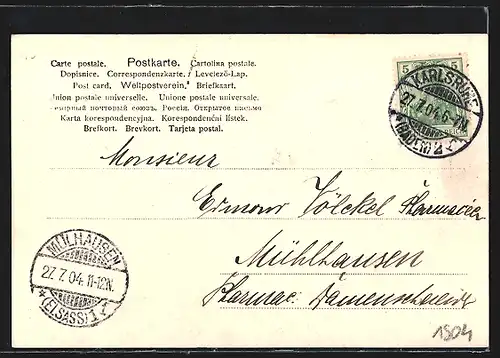 Carte postale. Postkarte. Cartolina postale.
Dopisnice. Correspondenzkarte. Levelező-Lap.
Post card. Weltpostverein. Briefkaart.
Union postale universelle. Unione postale universale.
Всемірный почтовый союзъ. Россія. Открытое письмо
Karta korespondencyjna. Korespondenční lístek.
Brefkort. Brevkort. Tarjeta postal.
5 5
KARLSRUHE
27.7.04. 6-7
(BADEN) 2
Monsieur
Völckel Pharmacien
Mühlhausen
MÜLHAUSEN
27.7.04. 11-12N.
*(ELSASS) 1
1904